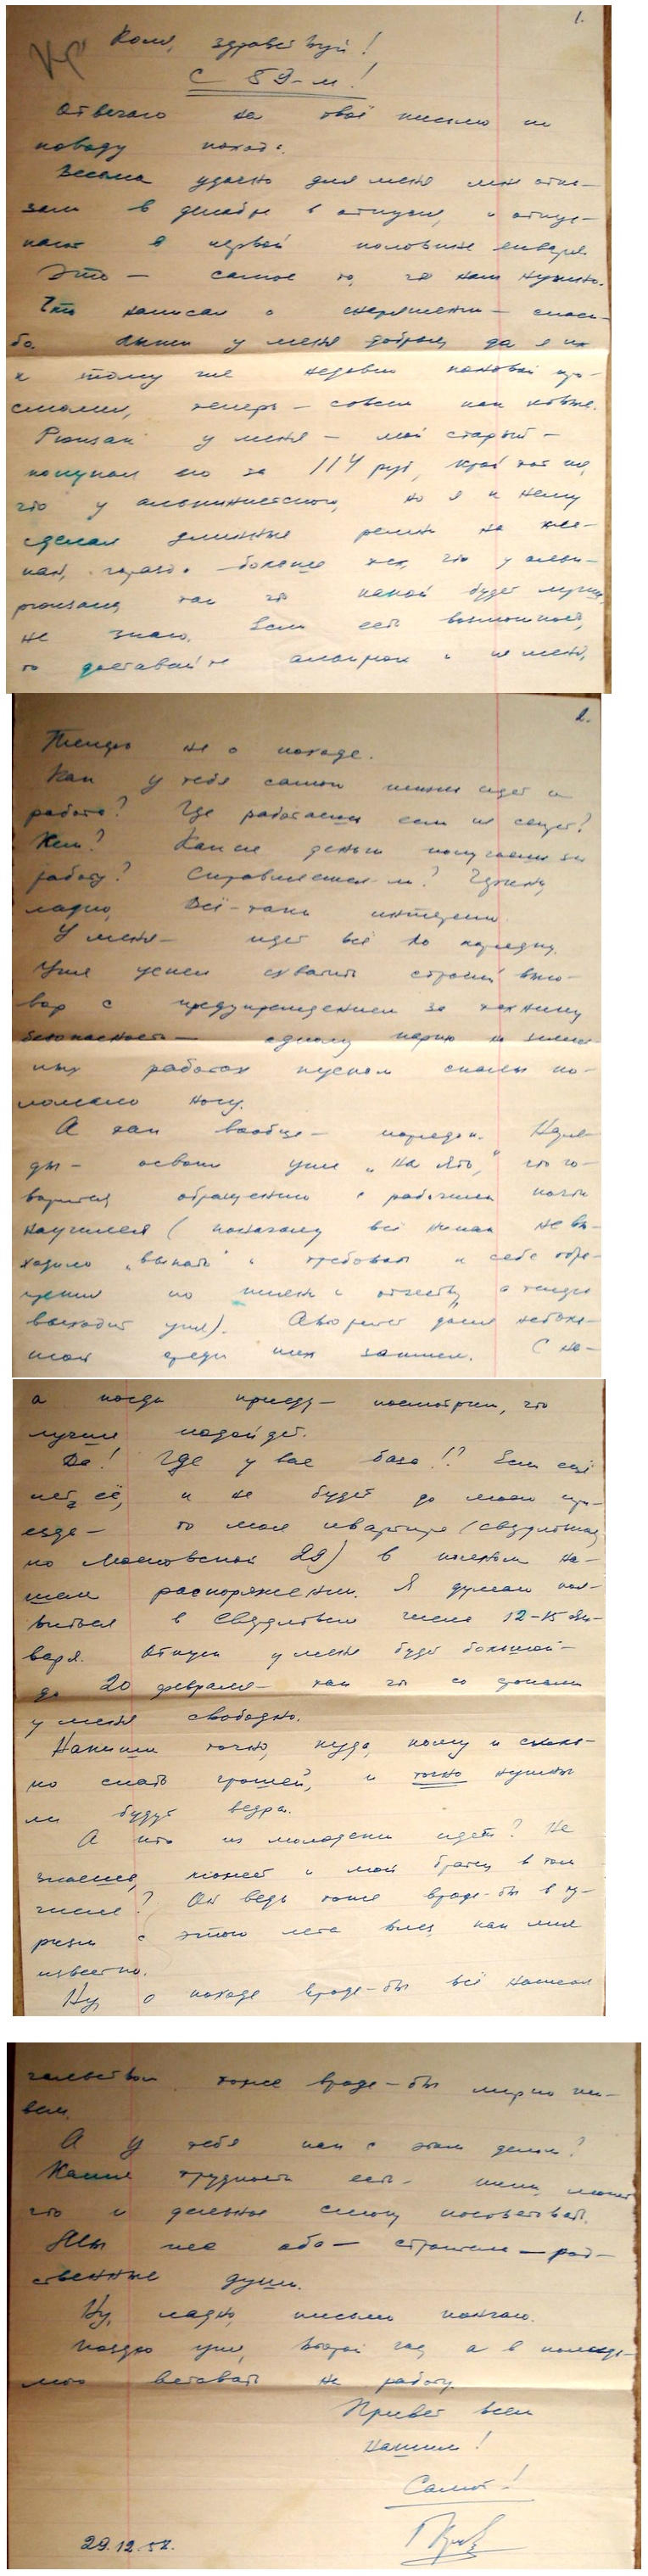 1.
Коля, здравствуй!
С 59-м!
Отвечаю на твоё письмо по
поводу похода.
Весьма удачно для меня мне отка-
зали в декабре в отпуске, и отпус-
кают в первой половине января.
Это — самое то, что нам нужно.
Что написал о снаряжении — спаси-
бо. Лыжи у меня добрые, да я их
к тому же недавно паковой про-
смолил, теперь — совсем как новые.
Рюкзак у меня — мой старый —
покупал его за 114 руб, крой тот же,
что у альпинистского, но я к нему
сделал длинные ремни на кла-
пан, гораздо больше тех, что у альп-
рюкзака, так что какой будет лучше,
не знаю. Если есть возможность,
то доставайте альпрюк и на меня,
2.
Теперь не о походе.
Как у тебя самого жизнь идет и
работа? Где работаешь если не секрет?
Кем? Какие деньги получаешь за
работу? Справляешься-ли? Черкни,
ладно, всё-таки интересно.
У меня — идет всё по порядку.
Уже успел схватить строгий выго-
вор с предупреждением за технику
безопасности — одному парню на земля-
ных работах куском скалы по-
ломало ногу.
А так вообще — порядок. Наря-
ды — освоил уже „на ять", что го-
ворится, обращению с рабочими почти
научился (поначалу всё никак не вы-
ходило „выкать" и требовать к себе обра-
щения по имени и отчеству, а теперь
выходит уже). Авторитет даже неболь-
шой среди них заимел. С на-
а когда приеду — посмотрим, что
лучше подойдет.
Да! Где у вас база!? Если ещё
нет её, и не будет до моего при-
езда — то моя квартира (свердловская
по Московской 29) в полном на-
шем распоряжении. Я думаю поя-
виться в Свердловске числа 12-15 ян-
варя. Отпуск у меня будет большой —
до 20 февраля — так что со сроками
у меня свободно.
Напиши точно, куда, кому и сколь-
ко слать грошей, и точно нужны
ли будут ведра.
А кто из молодежи идет? Не
знаешь, может и мой братец в том
числе? Он ведь тоже вроде-бы в ту-
ризм с этого лета влез, как мне
известно.
Ну, о походе вроде-бы всё написал
чальством тоже вроде-бы мирно жи-
вем.
А у тебя как с этим делом?
Какие трудности есть — пиши, может
что и дельное смогу посоветовать.
Мы же оба — строители — род-
ственные души.
Ну, ладно, письмо кончаю.
Поздно уже, второй час, а в
вставать на работу.
Привет всем
нашим!
Салют!
29.12.58.